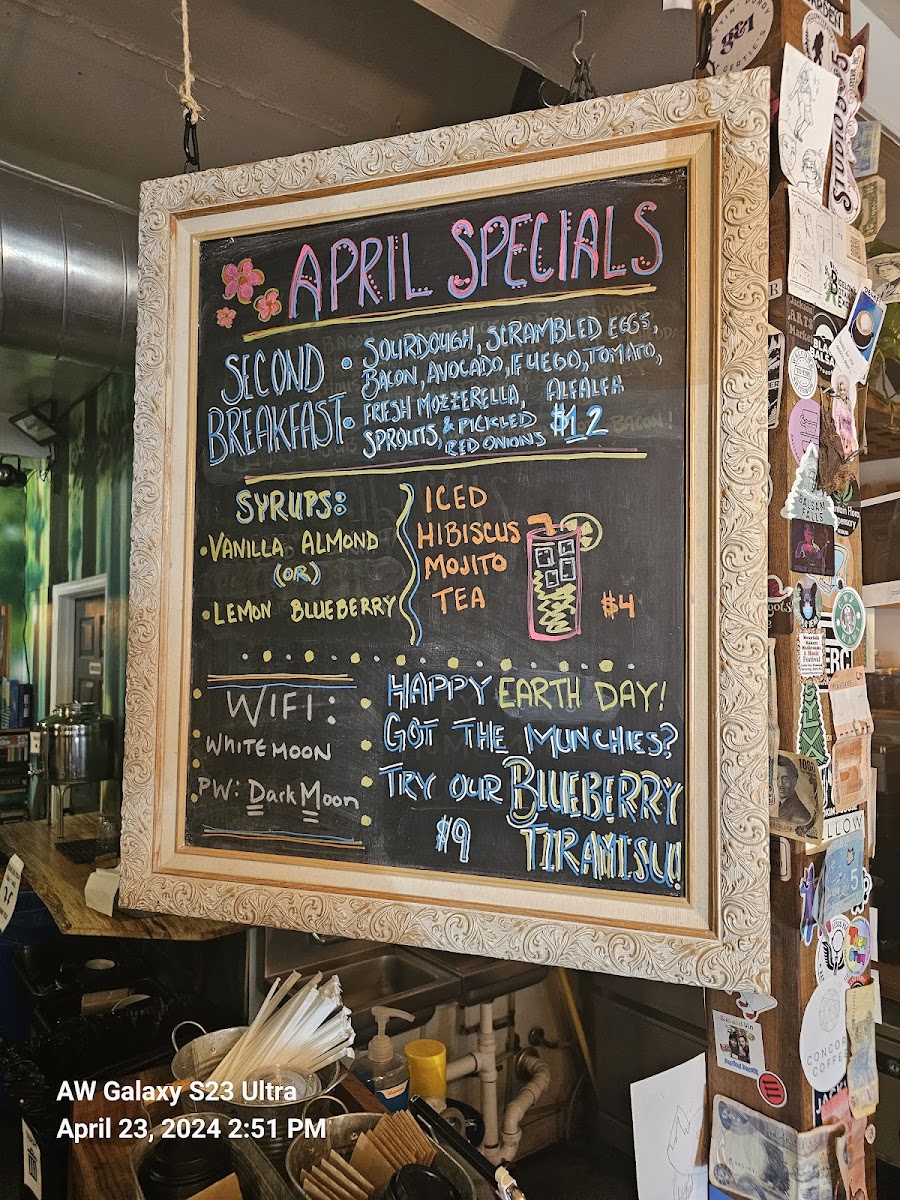 APRIL SPECIALS
SECOND BREAKFAST
• SOURDOUGH, SCRAMBLED EGGS,
BACON, AVOCADO, FUEGO, TOMATO,
• FRESH MOZZERELLA, ALFALFA
SPROUTS, & PICKLED
RED ONIONS $12
SYRUPS:
• VANILLA ALMOND
(OR)
• LEMON BLUEBERRY
ICED
HIBISCUS
MOJITO
TEA
$4
WIFI:
WHITEMOON
PW: DarkMoon
HAPPY EARTH DAY!
GOT THE MUNCHIES?
TRY OUR BLUEBERRY
$9 TIRAMISU!
g&l
GERTIE'S
BALSAM
FALLS
1000
5
CONCORD
COFFEE
AW Galaxy S23 Ultra
April 23, 2024 2:51 PM